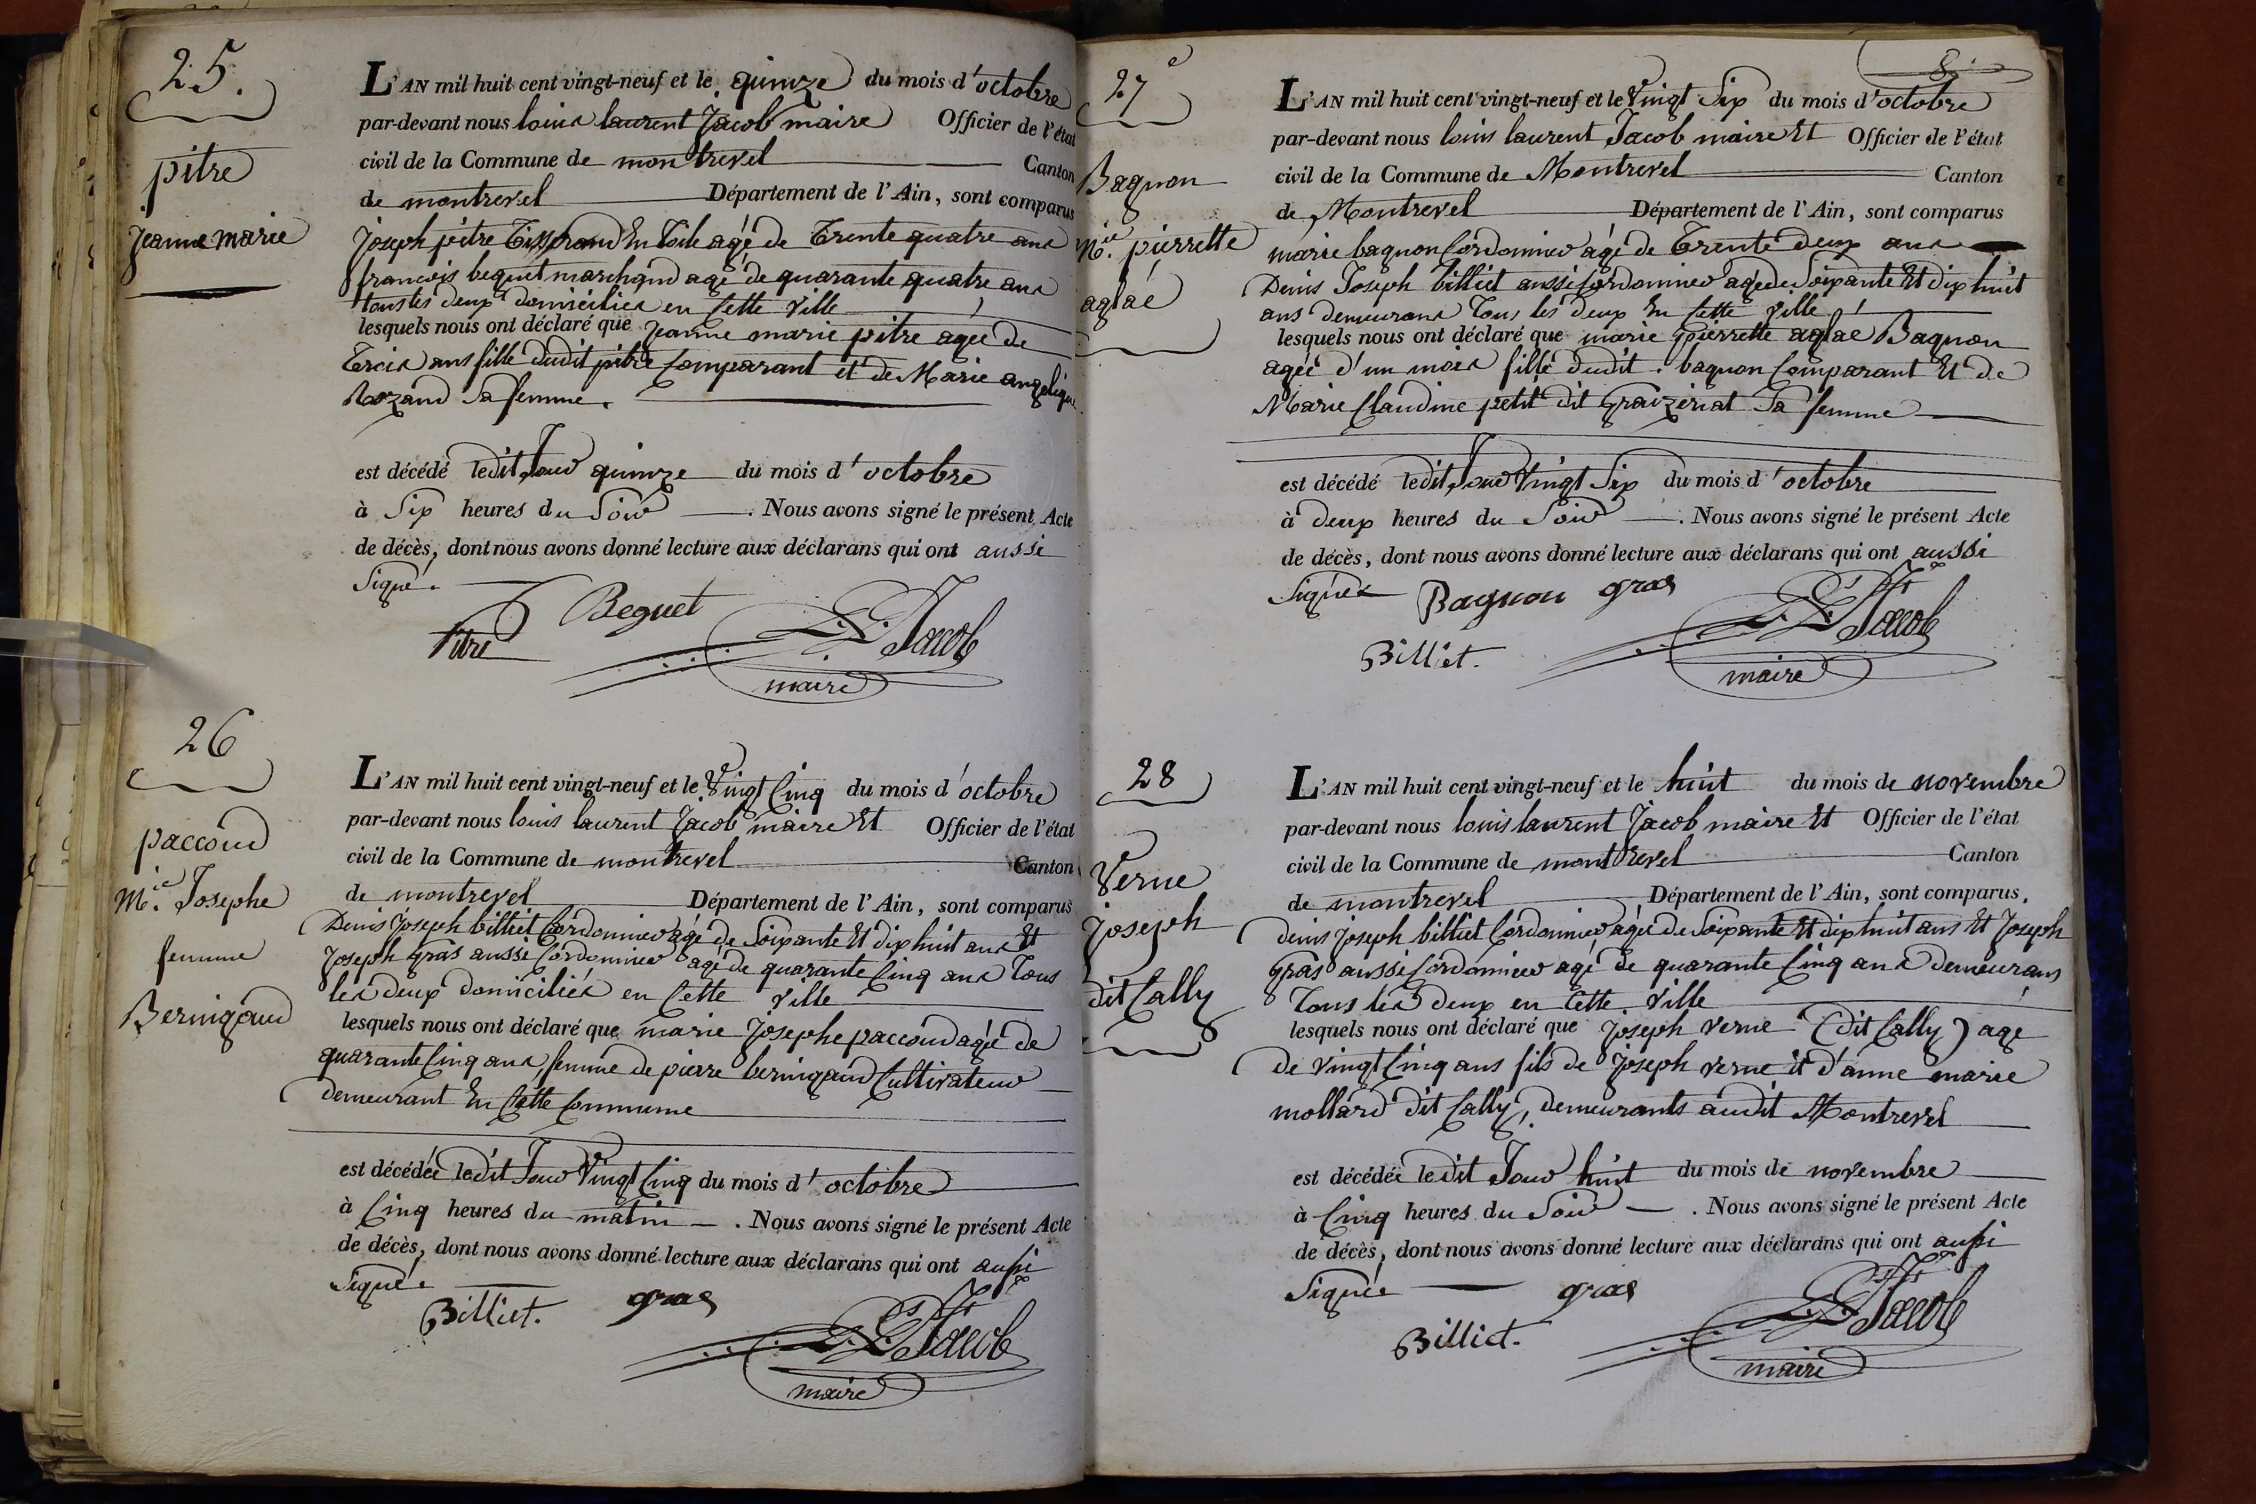 25.
pitre
jeanne marie
L'AN mil huit cent vingt-neuf et le quinze du mois d'octobre
par-devant nous louis laurent Jacob maire Officier de l'état
civil de la Commune de montrevel Canton
de montrevel Département de l'Ain, sont comparus
joseph pitre Tisserand En Toile agé de Trente quatre ans
francois bequet marchand agé de quarante quatre ans
tous les deux domiciliés en Cette ville
lesquels nous ont déclaré que jeanne marie pitre agée de
Trois ans fille dudit pitre Comparant et de Marie angelique
Rozand Sa femme.
est décédé ledit Jour quinze du mois d'octobre
à Six heures du Soir. Nous avons signé le présent Acte
de décès, dont nous avons donné lecture aux déclarans qui ont aussi
Signé.
Pitre Beguet L. L. Jacob
maire
26
paccoud
M.ie Josephe
femme
Bernigaud
L'AN mil huit cent vingt-neuf et le Vingt Cinq du mois d'octobre
par-devant nous louis laurent Jacob maire Et Officier de l'état
civil de la Commune de montrevel Canton
de montrevel Département de l'Ain, sont comparus
Denis joseph billiet Cordonnier agé de Soixante Et dix huit ans Et
joseph Gras aussi Cordonnier agé de quarante Cinq ans Tous
les deux domiciliés en Cette ville
lesquels nous ont déclaré que marie josephe paccoud agée de
quarante Cinq ans, femme de pierre bernigaud Cultivateur
demeurant En Cette Commune
est décédée ledit Jour Vingt Cinq du mois d'octobre
à Cinq heures du matin. Nous avons signé le présent Acte
de décès, dont nous avons donné lecture aux déclarans qui ont aussi
Signé.
Billiet. gras L. L. Jacob
maire
8.
27e
Bagnon
M.ie pierrette
aglaé
L'AN mil huit cent vingt-neuf et le Vingt Six du mois d'octobre
par-devant nous louis laurent Jacob maire Et Officier de l'état
civil de la Commune de Montrevel Canton
de Montrevel Département de l'Ain, sont comparus
marie bagnon Cordonnier agé de Trente deux ans
Denis Joseph billiet aussi Cordonnier agé de Soixante Et dix huit
ans demeurans Tous les deux En Cette ville
lesquels nous ont déclaré que marie pierrette aglaé Bagnon
agée d'un mois fille dudit bagnon Comparant Et de
Marie Claudine petit dit Graizeriat Sa femme
est décédé ledit Jour Vingt Six du mois d'octobre
à deux heures du Soir. Nous avons signé le présent Acte
de décès, dont nous avons donné lecture aux déclarans qui ont aussi
Signés Bagnon gras
Billiet. L. L. Jacob
maire
28
Verne
joseph
dit Cally
L'AN mil huit cent vingt-neuf et le huit du mois de novembre
par-devant nous louis laurent Jacob maire Et Officier de l'état
civil de la Commune de montrevel Canton
de montrevel Département de l'Ain, sont comparus.
denis joseph billiet Cordonnier agé de Soixante Et dix huit ans Et Joseph
Gras aussi Cordonnier agé de quarante Cinq ans demeurans
Tous les deux en Cette ville
lesquels nous ont déclaré que joseph verne (dit Cally) agé
de vingt Cinq ans fils de joseph verne et d'anne marie
mollard dit Cally, demeurants audit Montrevel
est décédée ledit Jour huit du mois de novembre
à Cinq heures du Soir. Nous avons signé le présent Acte
de décès, dont nous avons donné lecture aux déclarans qui ont aussi
Signée gras
Billiet. L. L. Jacob
maire